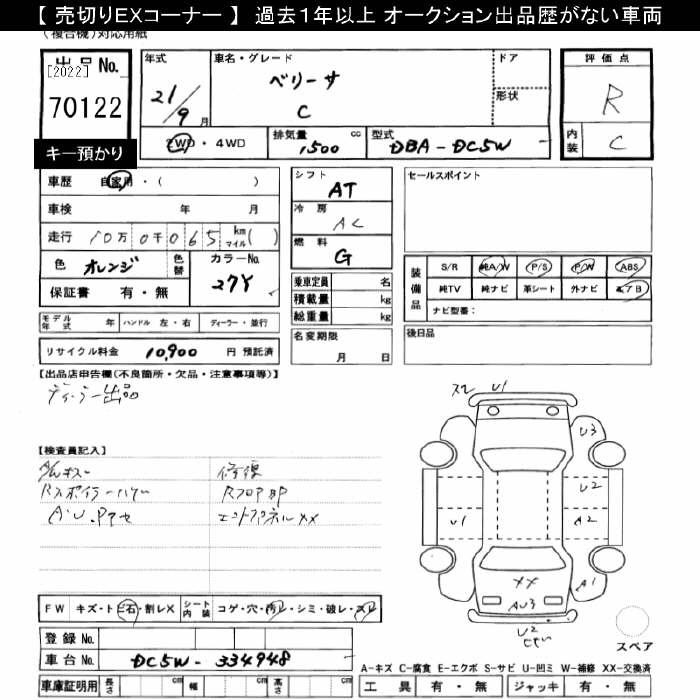 【 売切りEXコーナー 】 過去１年以上 オークション出品歴がない車両
(複合機)対応用紙
出品No. 年式 車名・グレード ドア 評価点
[2022] ベリーサ
70122 21/9 月 C 形状 R
キー預かり 2WD・4WD 排気量 1500 cc 型式 DBA-DC5W 内装 C
車歴 自家用・( ) シフト AT セールスポイント
車検 年 月 冷房 AC
走行 10万0千065 km マイル ( ) 燃料 G
色 オレンジ 色替 カラーNo. 27Y
保証書 有・無
乗車定員 名
積載量 kg
総重量 kg
装備品 S/R 純A/W P/S P/W ABS
純TV 純ナビ 革シート 外ナビ エアB
ナビ型番:
モデル年式 年 ハンドル 左・右 ディーラー・並行 名変期限 月 日 後日品
リサイクル料金 10,900 円 預託済
【出品店申告欄(不良箇所・欠品・注意事項等)】
ディーラー出品
【検査員記入】
修復
Rフロア部
エンドパネルXX
U1
U3
U2
U1 A2
XX A1
AU3
U2
スペア
FW キズ・ト ビ石・割レX シート内装 コゲ・穴・汚レ・シミ・破レ・スレ
登録No.
車台No. DC5W-334948
A-キズ C-腐食 E-エクボ S-サビ U-凹ミ W-補修 XX-交換済
車庫証明用 長さ cm 幅 cm 高さ cm 工具 有・無 ジャッキ 有・無